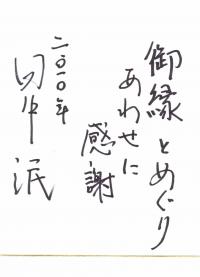 御縁とめぐり
あわせに
感謝
二〇一〇年
田中泯